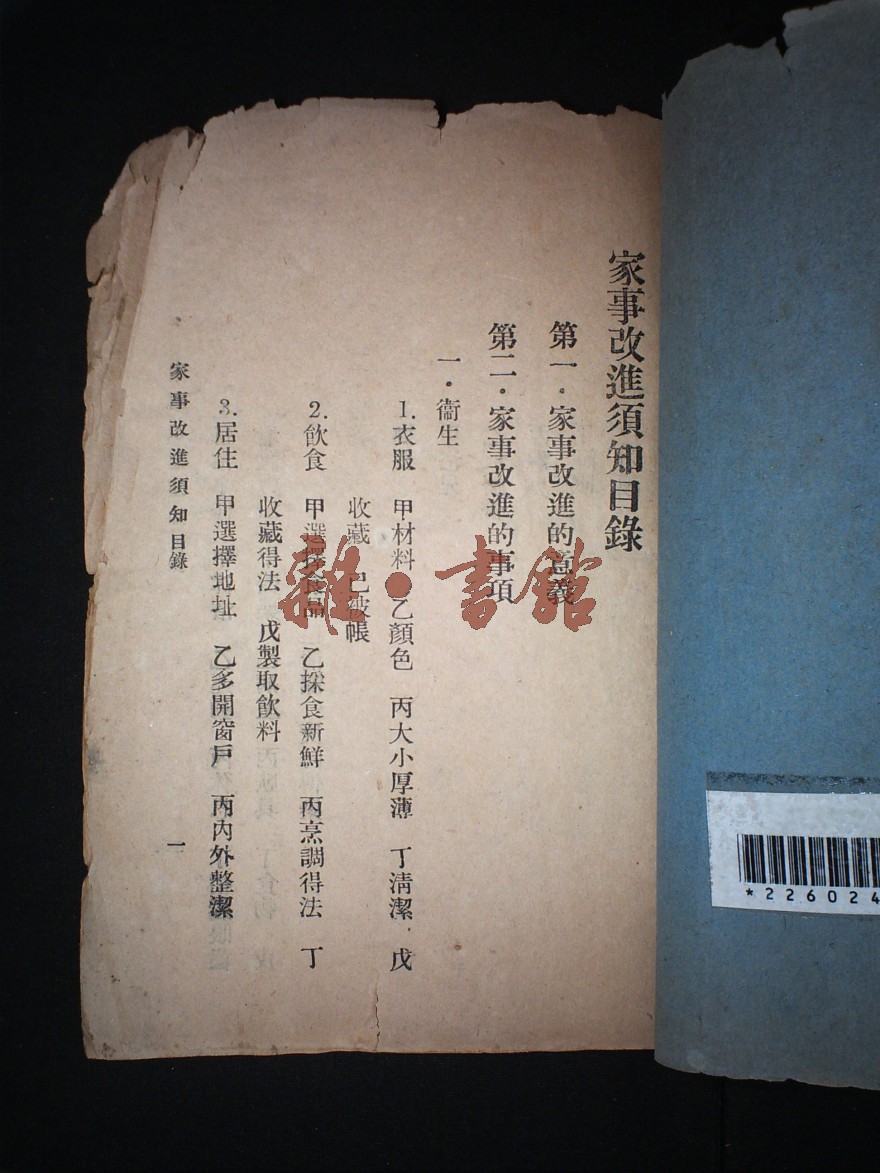 家事改進須知目錄
第一．家事改進的意義
第二．家事改進的事項
一．衞生
1.衣服　甲材料　乙顏色　丙大小厚薄　丁淸潔．戊
收藏　己被帳
2.飲食　甲選擇食品　乙採食新鮮　丙烹調得法　丁
收藏得法　戊製取飲料
3.居住　甲選擇地址　乙多開窗戶　丙內外整潔
家事改進須知目錄
一
雜·書館
*226024